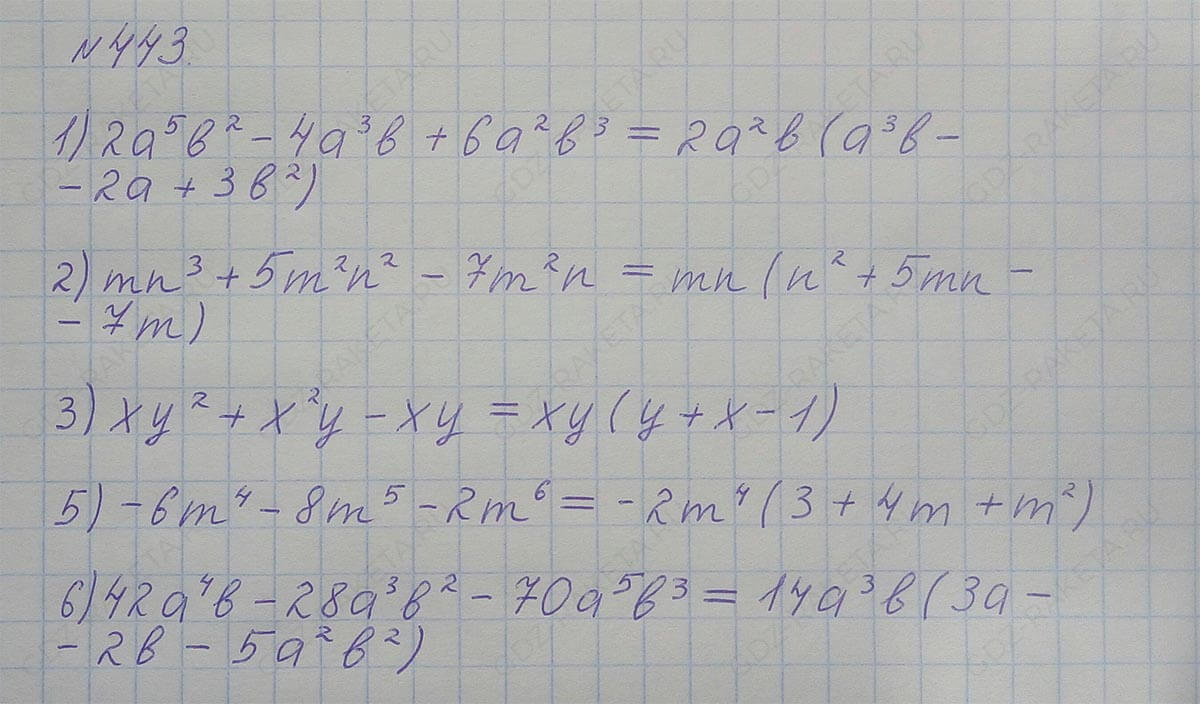 №443.
1) 2a⁵b² − 4a³b + 6a²b³ = 2a²b (a³b −
− 2a + 3b²)
2) mn³ + 5m²n² − 7m²n = mn (n² + 5mn −
− 7m)
3) xy² + x²y − xy = xy (y + x − 1)
5) −6m⁴ − 8m⁵ − 2m⁶ = −2m⁴ (3 + 4m + m²)
6) 42a⁴b − 28a³b² − 70a⁵b³ = 14a³b (3a −
− 2b − 5a²b²)
GDZ-RAKETA.RU